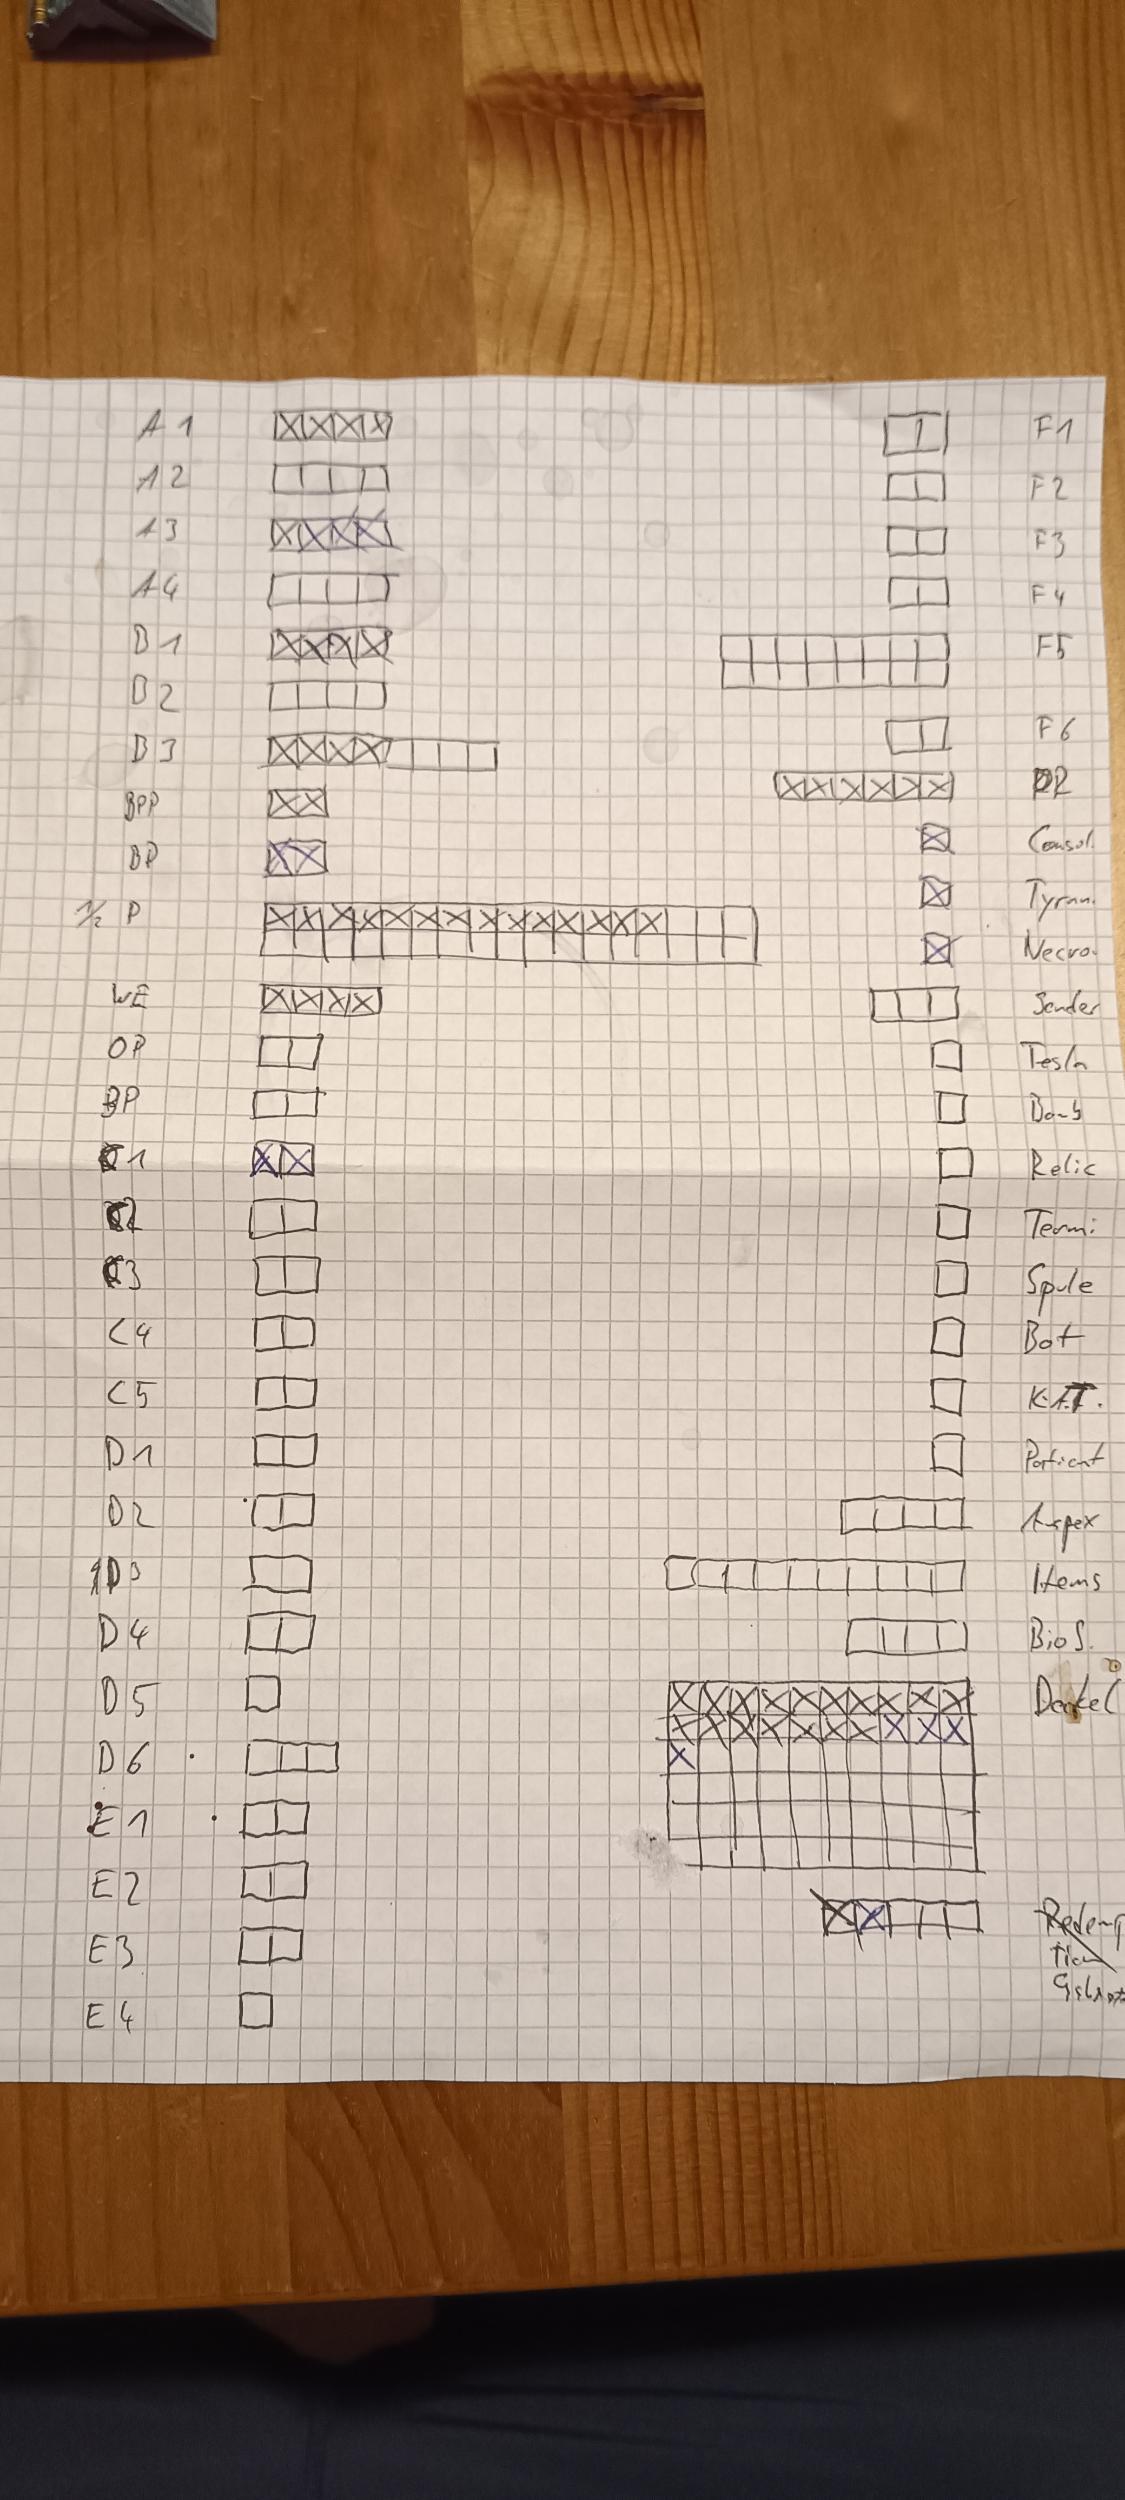 A1
A2
A3
A4
B1
B2
B3
BPP
BP
1/2 P
WE
OP
BP
C1
C2
C3
C4
C5
D1
D2
D3
D4
D5
D6
E1
E2
E3
E4
F1
F2
F3
F4
F5
F6
DR
Consol.
Tyran.
Necro.
Sender
Tesla
Bomb
Relic
Termi
Spule
Bot
K.A.T.
Patient
Auspex
Items
BioS.
Deckel
Redemp
tion